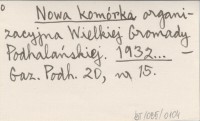 Nowa komórka organi-
zacyjna Wielkiej Gromady
Podhalańskiej. 1932... –
Gaz. Podh. 20, nr 15.